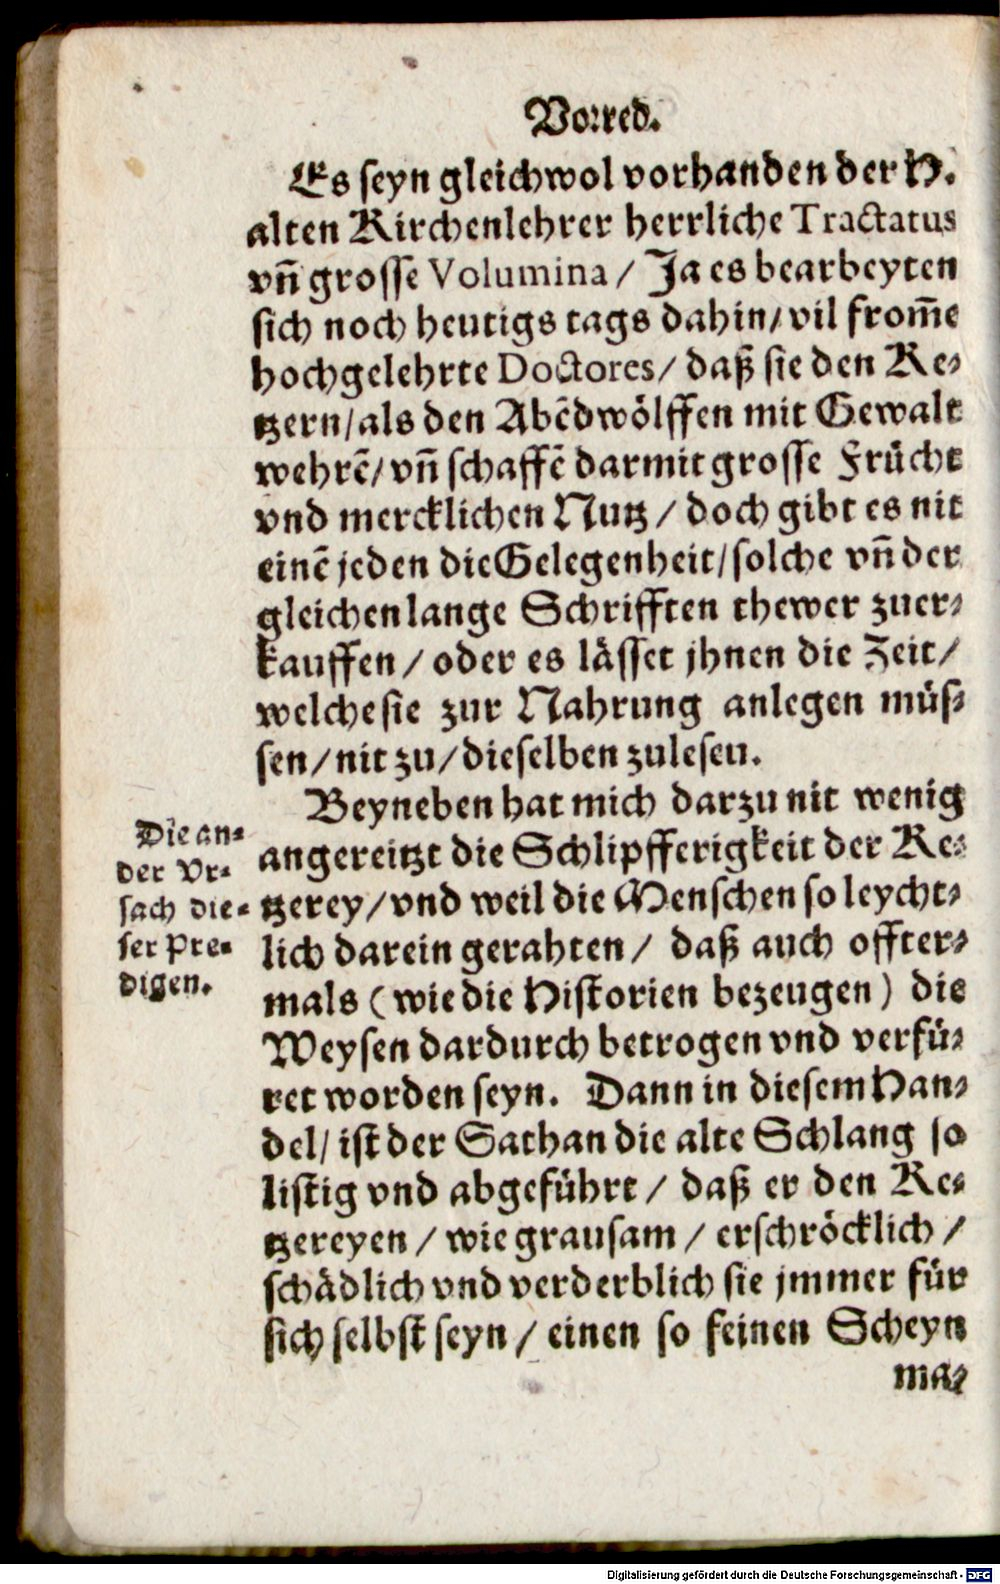 Vorred.
Es seyn gleichwol vorhanden der H.
alten Kirchenlehrer herrliche Tractatus
vñ grosse Volumina / Ja es bearbeyten
sich noch heutigs tags dahin / vil from̃e
hochgelehrte Doctores / daß sie den Ke-
tzern / als den Abẽdwölffen mit Gewalt
wehrẽ / vñ schaffẽ darmit grosse Frücht
vnd mercklichen Nutz / doch gibt es nit
einẽ jeden die Gelegenheit / solche vñ der
gleichen lange Schrifften thewer zuer-
kauffen / oder es lässet jhnen die Zeit /
welche sie zur Nahrung anlegen müs-
sen / nit zu / dieselben zulesen.
Beyneben hat mich darzu nit wenig
angereitzt die Schlipfferigkeit der Ke-
tzerey / vnd weil die Menschen so leycht-
lich darein gerahten / daß auch offter-
mals (wie die Historien bezeugen) die
Weysen dardurch betrogen vnd verfü-
ret worden seyn. Dann in diesem Han-
del / ist der Sathan die alte Schlang so
listig vnd abgeführt / daß er den Ke-
tzereyen / wie grausam / erschröcklich /
schädlich vnd verderblich sie jmmer für
sich selbst seyn / einen so feinen Scheyn
ma-
Die an-
der Vr-
sach die-
ser Pre-
digen.
Digitalisierung gefördert durch die Deutsche Forschungsgemeinschaft - DFG